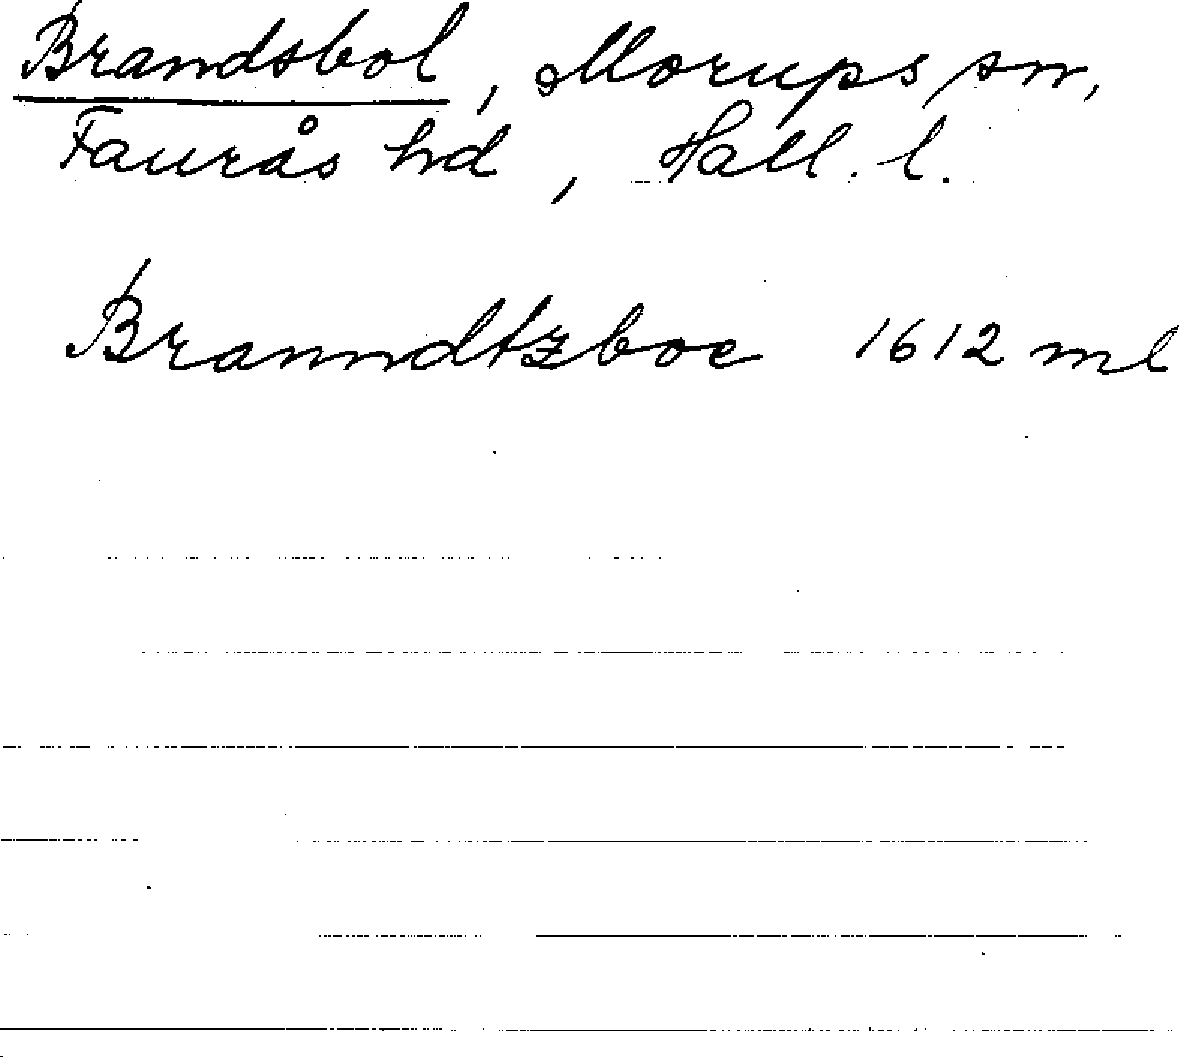 Brandsbol, Morups sn,
Faurås hd, Hall. l.
Branndtzboe 1612 ml